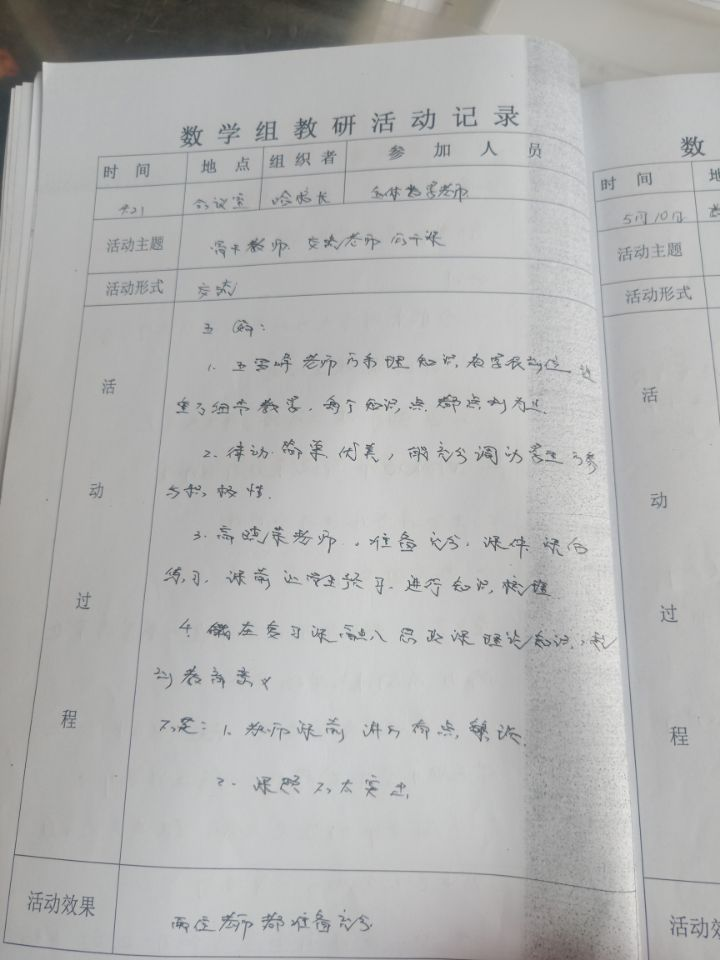 数学组教研活动记录
时间 地点 组织者 参加人员
4.21 会议室 哈校长 全体数学老师
活动主题 教师 交流老师 的干课
活动形式 交流
活动过程
1. 王雪峰老师 的 知识
细节教学，每个知识点都点到为止.
2. 律动 优美，能充分调动学生的参
与积极性.
3. 高晓荣老师，准备充分，课件 课后
练习，课前让学生预习，进行知识梳理
4. 在复习课融入思政课理论知识，
到教育意义
不足：1. 教师课前 有点 紧张.
2. 课题不太突出.
活动效果 两位老师都准备充分
数
时间 地
5月10日
活动主题
活动形式
活动过程
活动效